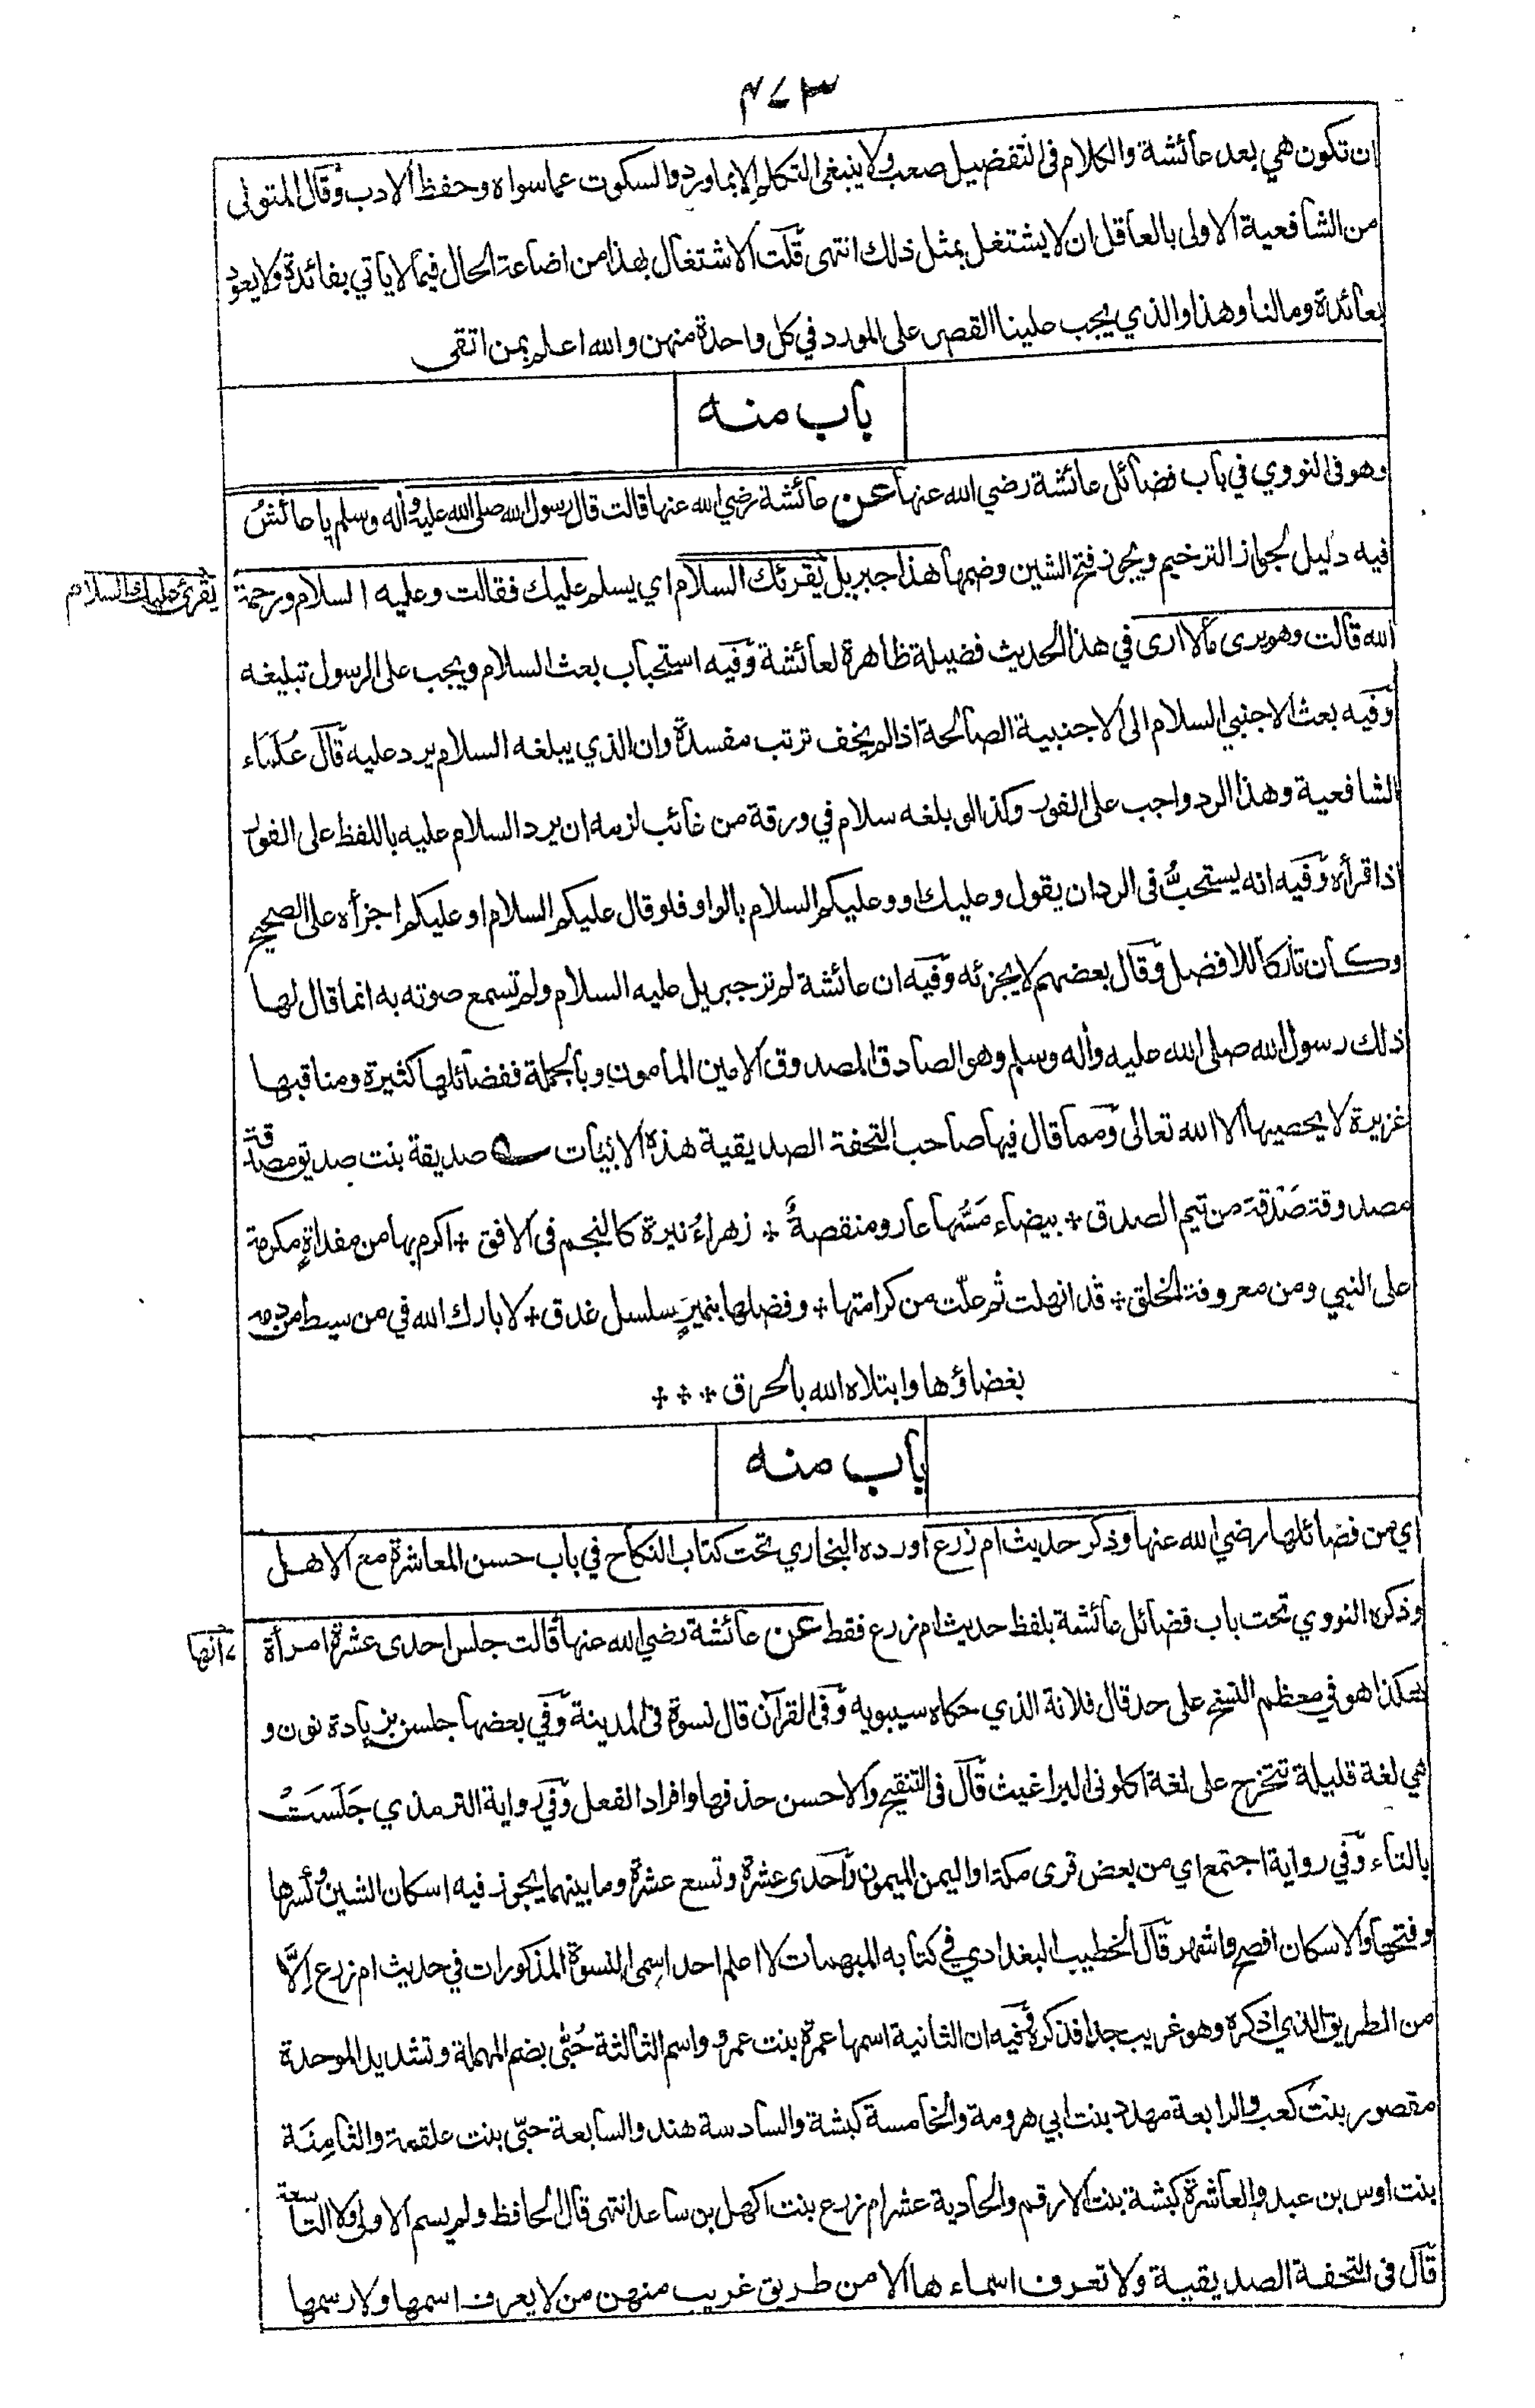 ٤٧٣
ان تكون هي بعد عائشة والكلام فى التفضيل صعب ولا ينبغى التكلم الا بما ورد والسكوت عما سواه وحفظ الادب وقال المتولى
من الشافعية الاولى بالعاقل ان لا يشتغل بمثل ذلك انتهى قلت الاشتغال بهذا من اضاعة الحال فيما لا ياتي بفائدة ولا يعود
بعائدة ومالنا وهذا والذي يجب علينا القصر على المورد في كل واحدة منهن والله اعلم بمن اتقى
باب منه
وهو فى النووي في باب فضائل عائشة رضي الله عنها عن عائشة رضي الله عنها قالت قال رسول الله صلى الله عليه وأله وسلم يا عائش
فيه دليل لجواز الترخيم ويجوز فتح الشين وضمها هذا جبريل يقرئك السلام اي يسلم عليك فقالت وعليه السلام ورحمة
يقرئ عليك السلام
الله قالت وهو يرى مالا ارى في هذا الحديث فضيلة ظاهرة لعائشة وفيه استحباب بعث السلام ويجب على الرسول تبليغه
وفيه بعث الاجنبي السلام الى الاجنبية الصالحة اذا لم يخف ترتب مفسدة وان الذي يبلغه السلام يرد عليه قال علماء
الشافعية وهذا الرد واجب على الفور وكذا لو بلغه سلام في ورقة من غائب لزمه ان يرد السلام عليه باللفظ على الفور
اذا قرأه وفيه انه يستحب فى الرد ان يقول وعليك او وعليكم السلام بالواو فلو قال عليكم السلام او عليكم اجزأه على الصحيح
وكان تاركا للافضل وقال بعضهم لا يجزئه وفيه ان عائشة لم تر جبريل عليه السلام ولم تسمع صوته به انما قال لها
ذلك رسول الله صلى الله عليه وأله وسلم وهو الصادق المصدوق الامين المامون وبالجملة ففضائلها كثيرة ومناقبها
غزيرة لا يحصيها الا الله تعالى ومما قال فيها صاحب التحفة الصديقية هذه الابيات صديقة بنت صديق ومصدقة
مصدوقة صدقة من تيم الصدق * بيضاء مسها عار ومنقصة * زهراء نيرة كالنجم فى الافق * اكرم بها من مفداة مكرمة
على النبي ومن معروفة الخلق * قد انهلت ثم علت من كرامتها * وفضلها بنمير سلسل غدق * لا بارك الله في من سيط من دمه
بغضاؤها وابتلاه الله بالحرق * * *
باب منه
اي من فضائلها رضي الله عنها وذكر حديث ام زرع اورده البخاري تحت كتاب النكاح في باب حسن المعاشرة مع الاهل
وذكره النووي تحت باب فضائل عائشة بلفظ حديث ام زرع فقط عن عائشة رضي الله عنها قالت جلس احدى عشرة امرأة
انها
هكذا هو في معظم النسخ على حد قال فلانة الذي حكاه سيبويه وفى القرآن قال نسوة فى المدينة وفي بعضها جلسن بزيادة نون و
هي لغة قليلة تتخرج على لغة اكلونى البراغيث قال فى التنقيح والاحسن حذفها وافراد الفعل وفي رواية الترمذي جلست
بالتاء وفي رواية اجتمع اي من بعض قرى مكة او اليمن الميمون واحدى عشرة وتسع عشرة وما بينهما يجوز فيه اسكان الشين وكسرها
وفتحها والاسكان افصح واشهر قال الخطيب البغدادي في كتابه المبهمات لا اعلم احدا سمى النسوة المذكورات في حديث ام زرع إلا
من الطريق الذي اذكره وهو غريب جدا فذكره وفيه ان الثانية اسمها عمرة بنت عمرو واسم الثالثة حبى بضم المهملة وتشديد الموحدة
مقصور بنت كعب والرابعة مهدد بنت ابي هرومة والخامسة كبشة والسادسة هند والسابعة حبى بنت علقمة والثامنة
بنت اوس بن عبد والعاشرة كبشة بنت الارقم والحادية عشر ام زرع بنت اكهل بن ساعد انتهى قال الحافظ ولم يسم الاولى ولا التاسعة
قال فى التحفة الصديقية ولا تعرف اسماءها الا من طريق غريب منهن من لا يعرف اسمها ولا رسمها